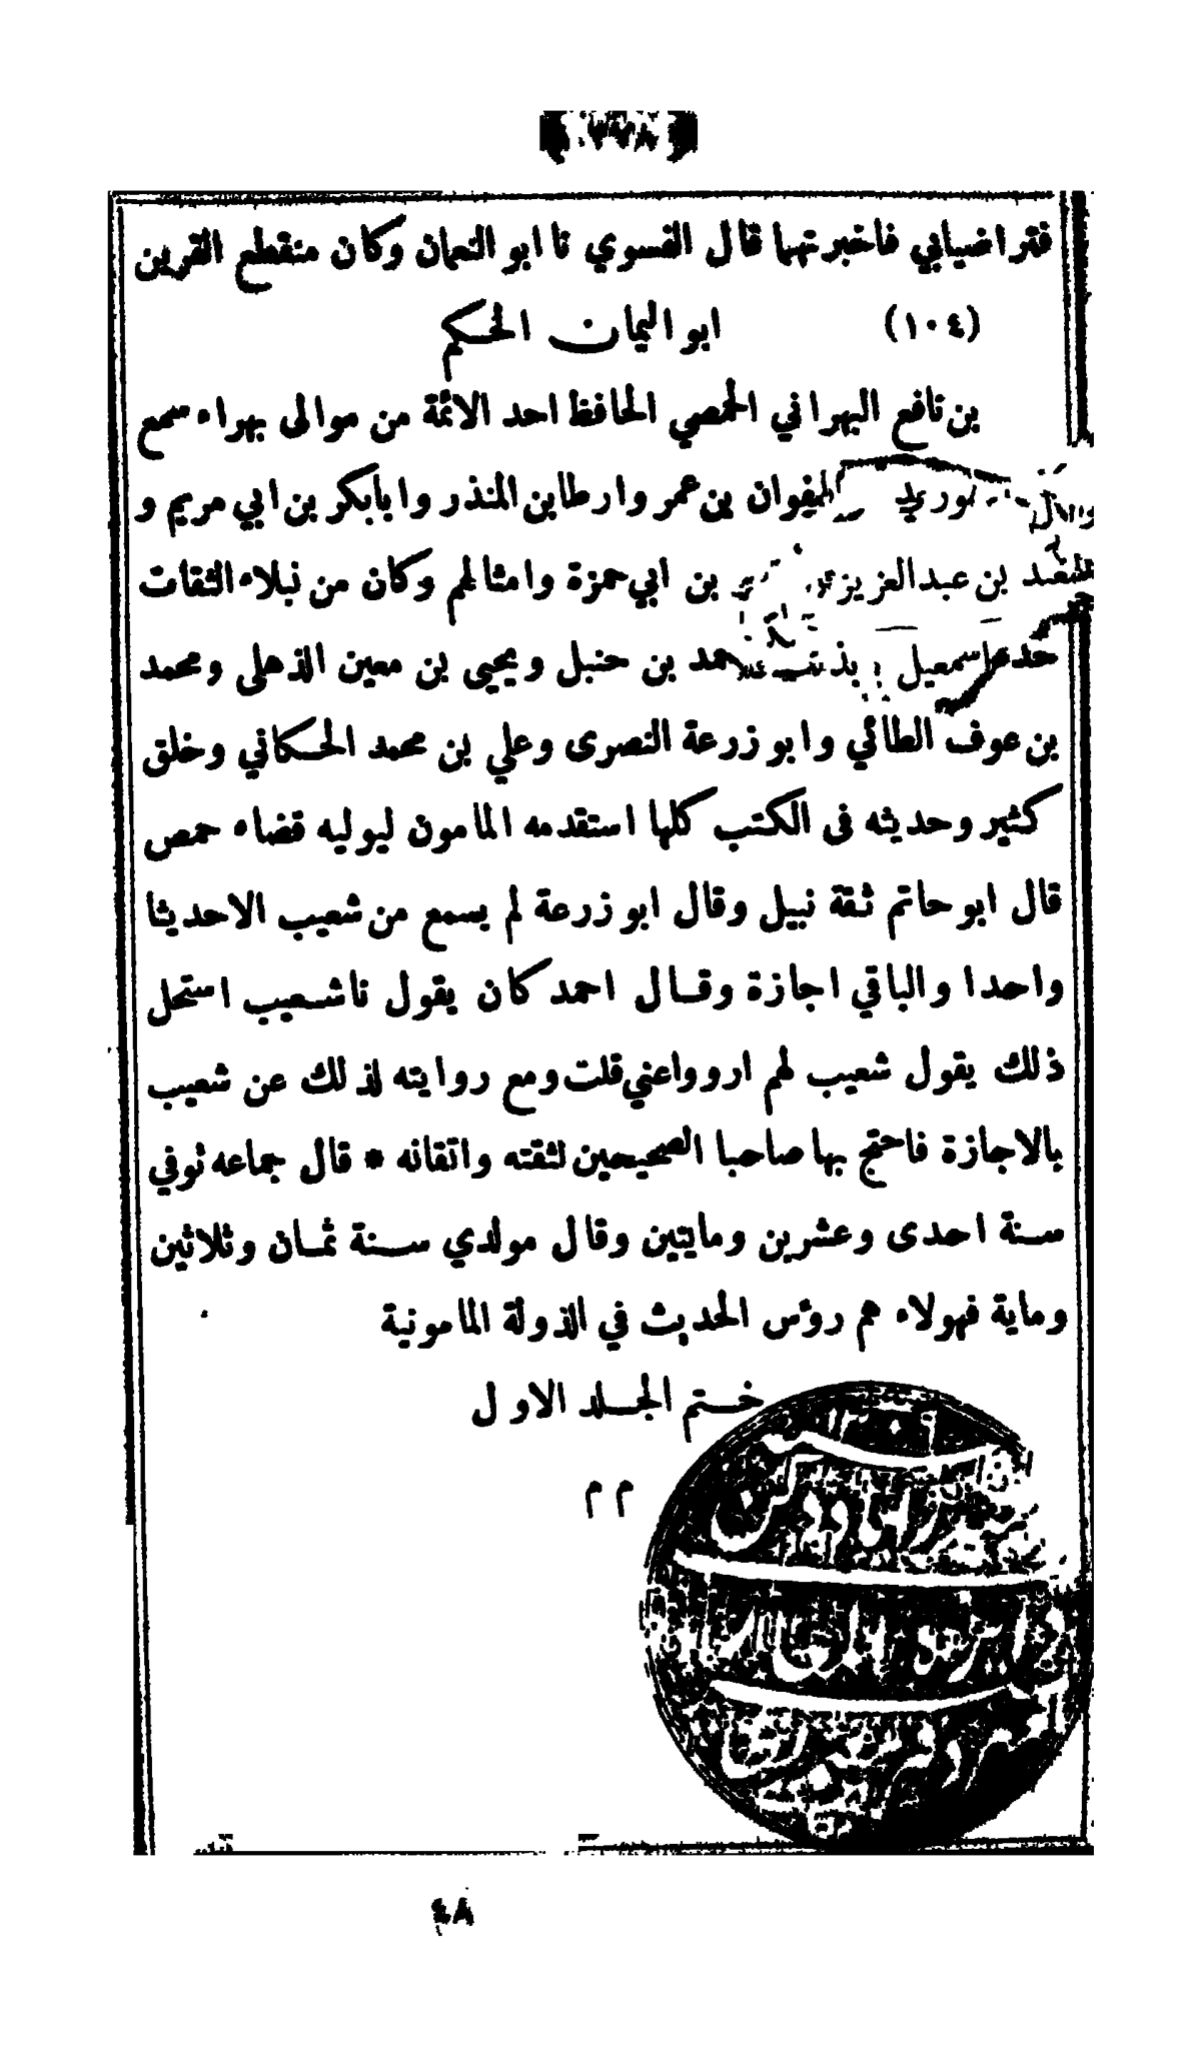 فتراضيابي فاخبرتهما قال الفسوي نا ابو النعمان وكان منقطع القرين
(١٠٤) ابو اليمان الحكم
بن نافع البهراني الحمصي الحافظ احد الائمة من موالى بهراء سمع
بن عمر وارطا بن المنذر وابا بكر بن ابي مريم و
بن عبد العزيز بن ابي حمزة وامثالهم وكان من نبلاء الثقات
اسمعيل بن حنبل ويحيى بن معين الذهلى ومحمد
بن عوف الطائي وابو زرعة النصرى وعلي بن محمد الحكاني وخلق
كثير وحديثه فى الكتب كلها استقدمه المامون ليوليه قضاء حمص
قال ابو حاتم ثقة نبيل وقال ابو زرعة لم يسمع من شعيب الاحديثا
واحدا والباقي اجازة وقال احمد كان يقول نا شعيب استحل
ذلك يقول شعيب لهم ارووا عني قلت ومع روايته لذلك عن شعيب
بالاجازة فاحتج بها صاحبا الصحيحين لثقته واتقانه * قال جماعه توفي
سنة احدى وعشرين ومايتين وقال مولدي سنة ثمان وثلاثين
وماية فهولاء هم رؤس الحديث في الدولة المامونية
ختم الجلد الاول
م م
٤٨